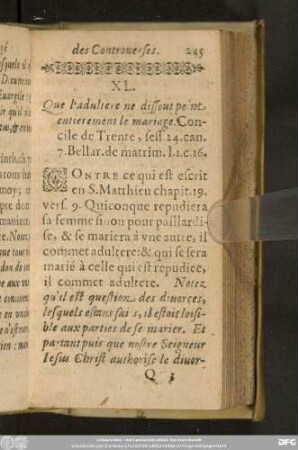 des Controuerses. 245
XL.
Que l'adultere ne dissout point
entierement le mariage. Con-
cile de Trente, sess. 24. can.
7. Bellar. de matrim. l. 1. c. 16.
CONTRE ce qui est escrit
en S. Matthieu chapit. 19.
vers. 9. Quiconque repudiera
sa femme sinon pour paillardi-
se, & se mariera à vne autre, il
commet adultere: & qui se sera
marié à celle qui est repudiee,
il commet adultere. Notez
qu'il est question des diuorces,
lesquels estans faits, il estoit loisi-
ble aux parties de se marier. Et
partant puis que nostre Seigneur
Iesus Christ authorise le diuor-
Q 3